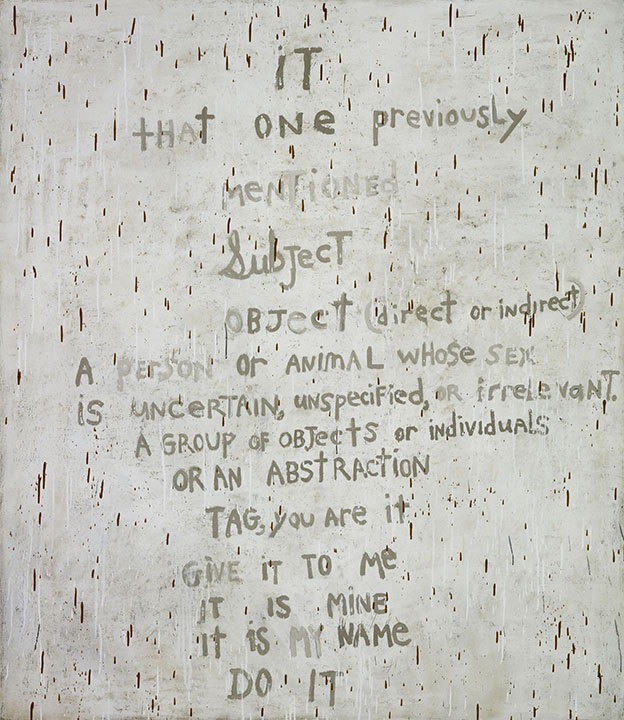 iT
tHAt ONe previously
MeNTIONEd
SubJecT
OBJect (direct or indirect)
A PERSON or ANIMAL whOSE SEX
is UNCERTAIN, unspecified, OR irreLevaNT.
A GROUP OF OBJEcts or individuals
OR AN ABSTRACTION
TAG, you Are it
GIVE IT TO Me
IT IS MINE
it is MY NAMe
DO IT